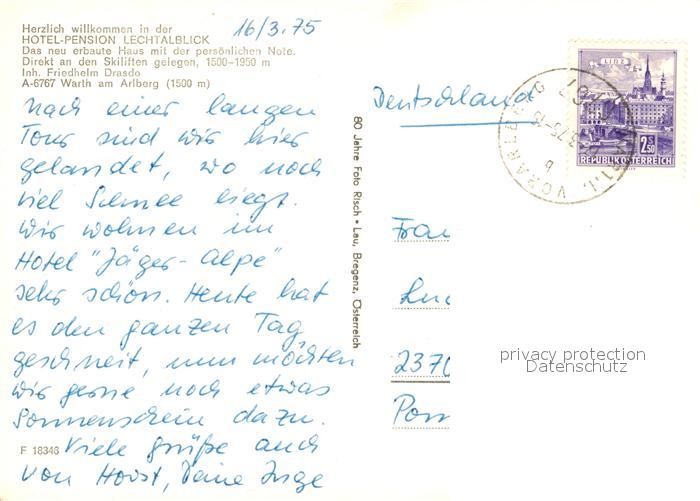 Herzlich willkommen in der
HOTEL-PENSION LECHTALBLICK
Das neu erbaute Haus mit der persönlichen Note.
Direkt an den Skiliften gelegen, 1500-1950 m
Inh. Friedhelm Drasdo
A-6767 Warth am Arlberg (1500 m)
16/3.75
Nach einer langen
Tour sind wir hier
gelandet, wo noch
viel Schnee liegt.
Wir wohnen im
Hotel "Jäger-Alpe"
sehr schön. Heute hat
es den ganzen Tag
geschneit, nun möchten
wir gerne noch etwas
Sonnenschein dazu.
Viele grüße auch
von Horst, Deine Inge
F 18348
80 Jahre Foto Risch • Lau, Bregenz, Österreich
Deutschland
LINZ
2.50
REPUBLIK ÖSTERREICH
VORARLBERG
b
Frau
237
privacy protection
Datenschutz